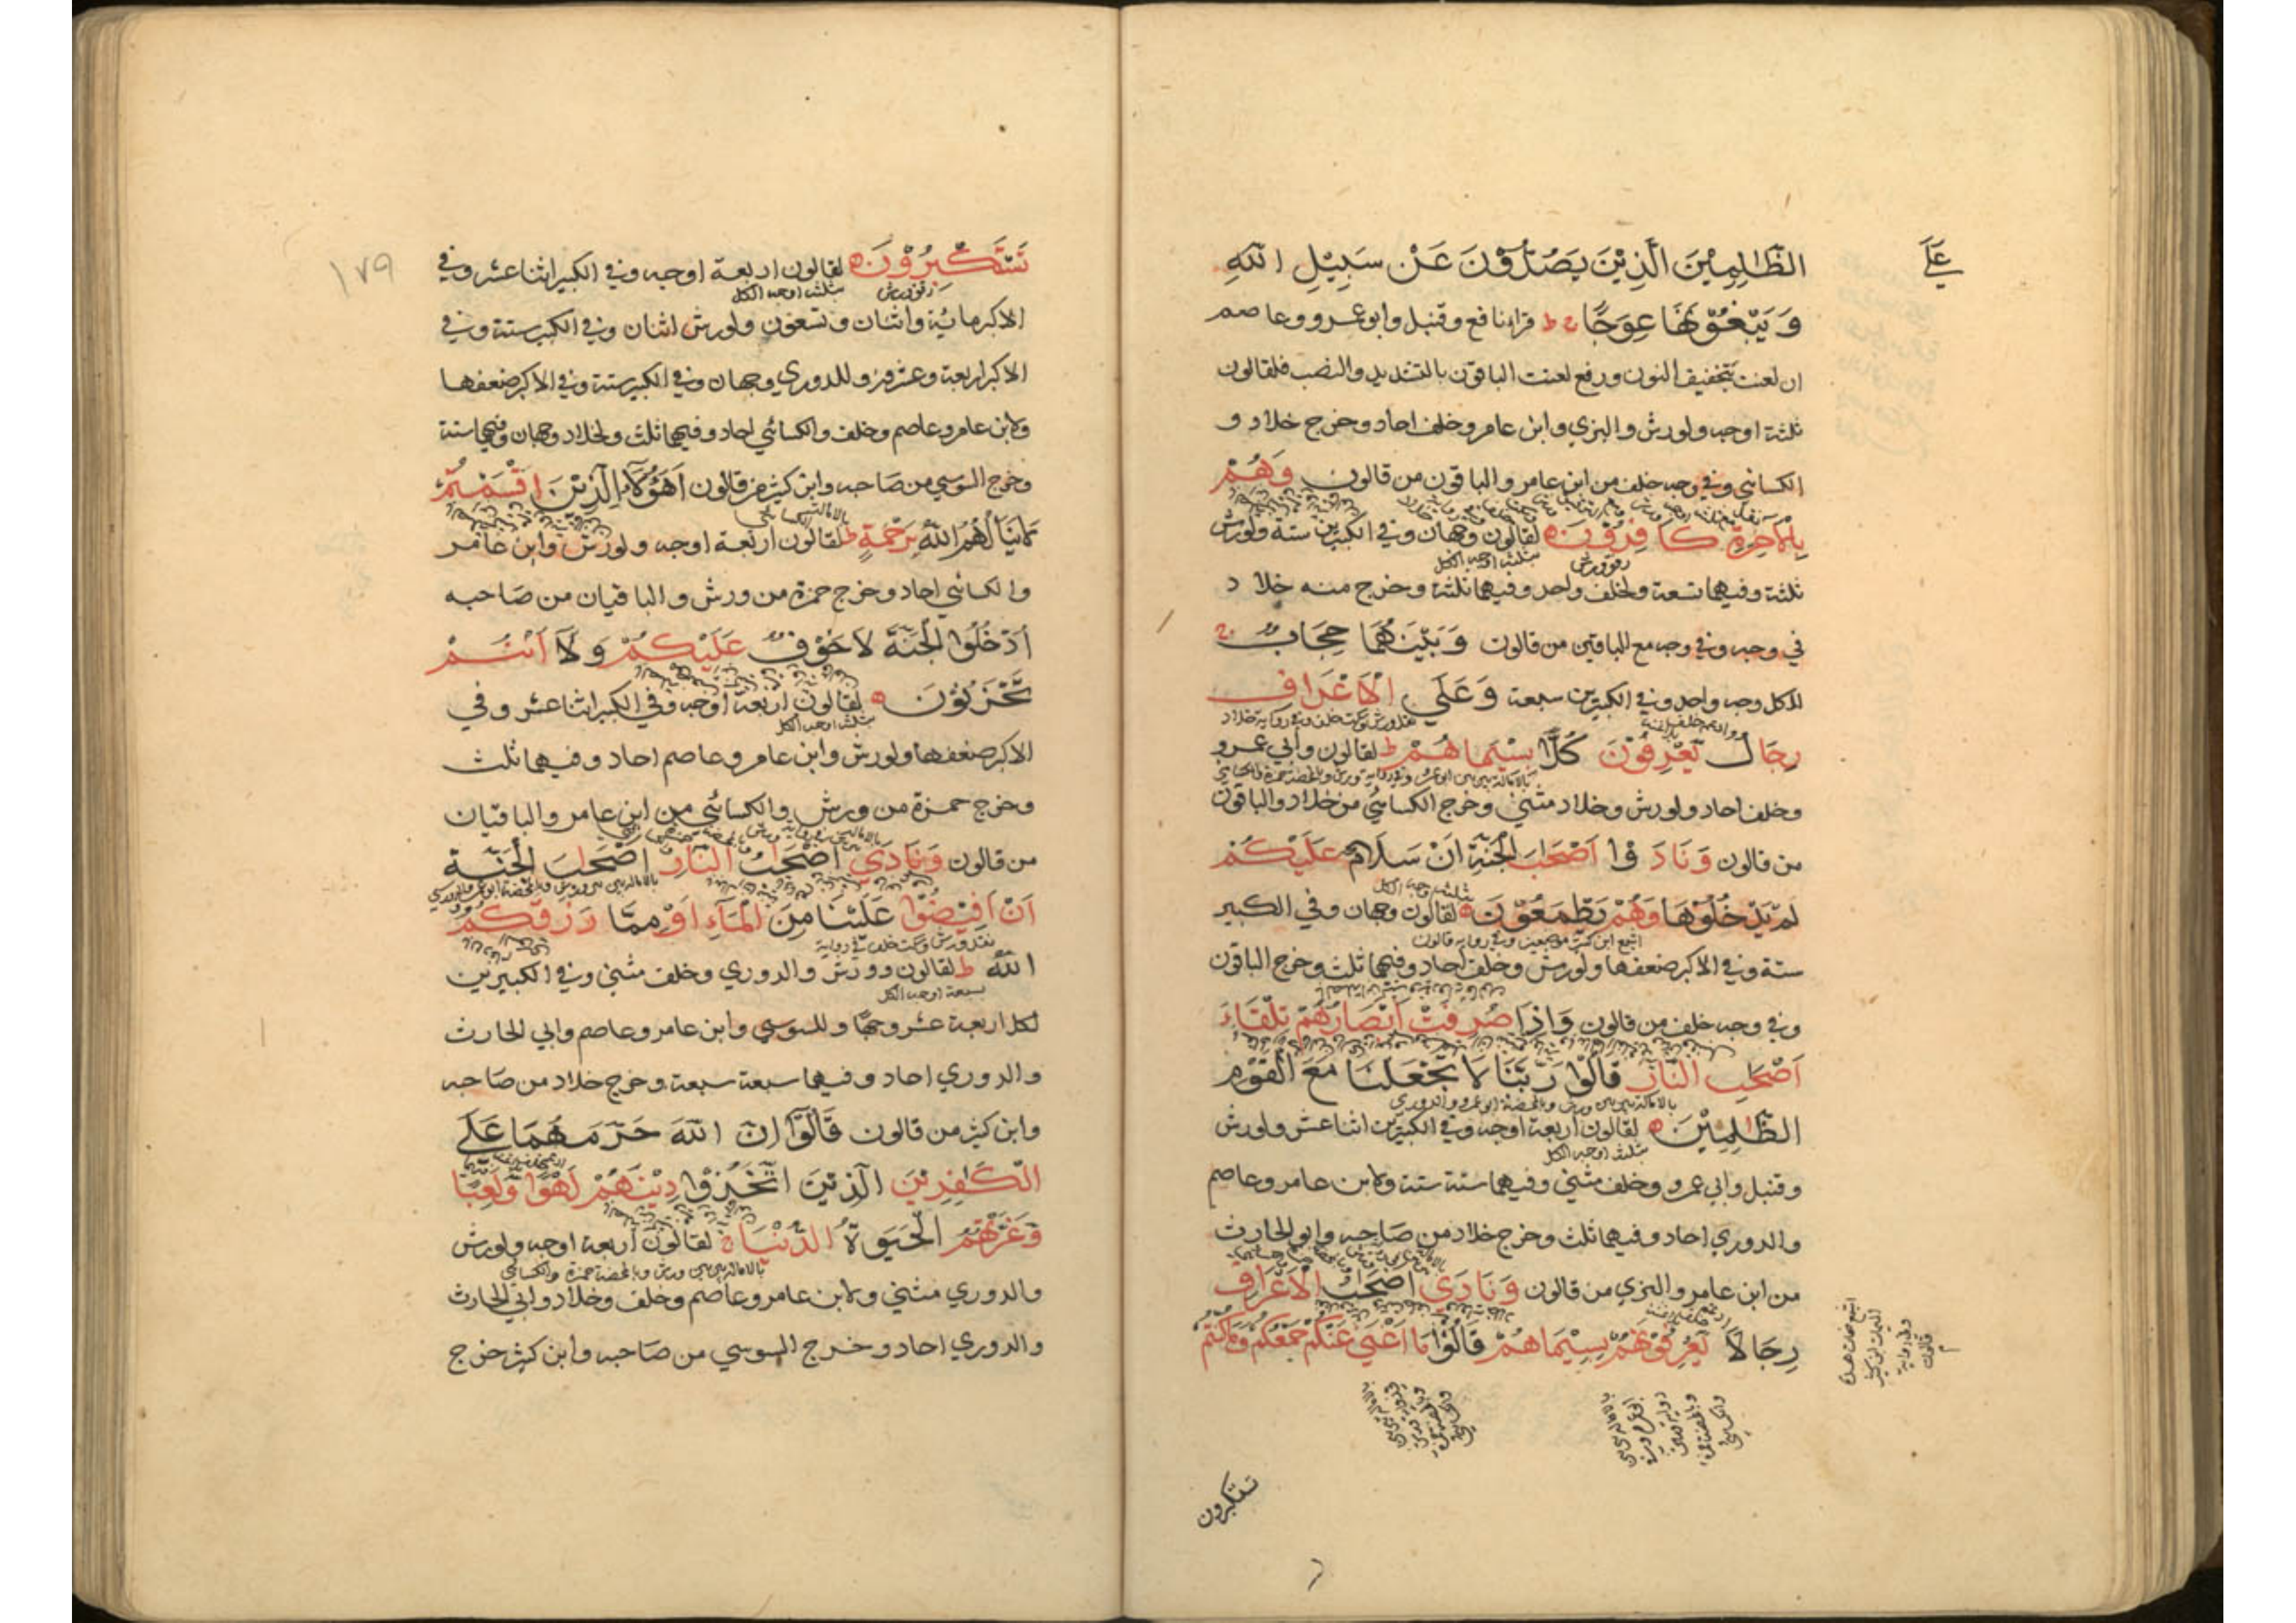 علي
الظٰلِمِيْنَ الَّذِيْنَ يَصُدُّوْنَ عَنْ سَبِيْلِ اللّٰهِ
وَيَبْغُوْنَهَا عِوَجًا ج ط قرا نافع وقنبل وابو عمرو وعاصم
ان لعنت بتخفيف النون ورفع لعنت الباقون بالتشديد والنصب فلقالون
ثلثة اوجه ولورش والبزي وابن عامر وخلف احاد وخرج خلاد و
الكسائي وفي وجه خلف من ابن عامر والباقون من قالون وَهُمْ
بِالْاٰخِرَةِ كَافِرُوْنَ لقالون وجهان وفي الكبيرين ستة ولورش
رقق ورش مثلث اوجه الكل
ثلثة وفيهما تسعة ولخلف واحد وفيهما ثلثة وخرج منه خلاد
في وجه وفي وجه مع الباقين من قالون وَبَيْنَهُمَا حِجَابٌ ج
للكل وجه واحد وفي الكبيرين سبعة وَعَلَي الْاَعْرَافِ
رِجَالٌ يَعْرِفُوْنَ كُلًّا بِسِيْمَاهُمْ ط لقالون وابي عمرو
وخلف احاد ولورش وخلاد مثني وخرج الكسائي من خلاد والباقون
من قالون وَنَادَوْا اَصْحٰبَ الْجَنَّةِ اَنْ سَلَامٌ عَلَيْكُمْ
مثلث اوجه الكل
لَمْ يَدْخُلُوْهَا وَهُمْ يَطْمَعُوْنَ لقالون وجهان وفي الكبير
ستة وفي الاكبر ضعفها ولورش وخلف احاد وفيهما ثلث وخرج الباقون
وفي وجه خلف من قالون وَاِذَا صُرِفَتْ اَبْصَارُهُمْ تِلْقَاءَ
اَصْحٰبِ النَّارِ قَالُوْا رَبَّنَا لَا تَجْعَلْنَا مَعَ الْقَوْمِ
بالامالة بين بين ورش وبالمحضة ابو عمرو والدوري
الظّٰلِمِيْنَ لقالون اربعة اوجه وفي الكبيرين اثنا عشر ولورش
مثلث اوجه الكل
وقنبل وابي عمرو وخلف مثني وفيهما ستة ستة ولابن عامر وعاصم
والدوري احاد وفيهما ثلث وخرج خلاد من صاحبه وابو الحارث
من ابن عامر والبزي من قالون وَنَادَي اَصْحٰبُ الْاَعْرَافِ
رِجَالًا يَعْرِفُوْنَهُمْ بِسِيْمَاهُمْ قَالُوْا مَا اَغْنَي عَنْكُمْ جَمْعُكُمْ وَمَا كُنْتُمْ
تستكبرون
١٧٩
تَسْتَكْبِرُوْنَ لقالون اربعة اوجه وفي الكبير اثنا عشر وفي
رقق ورش مثلث اوجه الكل
الاكبر مائة واثنان وتسعون ولورش اثنان وفي الكبير ستة وفي
الاكبر اربعة وعشرون وللدوري وجهان وفي الكبير ستة وفي الاكبر ضعفها
ولابن عامر وعاصم وخلف والكسائي احاد وفيهما ثلث ولخلاد وجهان وفيهما ستة
وخرج السوسي من صاحبه وابن كثير من قالون اَهٰؤُلَاءِ الَّذِيْنَ اَقْسَمْتُمْ
لَا يَنَالُهُمُ اللّٰهُ بِرَحْمَةٍ ط لقالون اربعة اوجه ولورش وابن عامر
والكسائي احاد وخرج حمزة من ورش والباقيان من صاحبه
اُدْخُلُوا الْجَنَّةَ لَا خَوْفٌ عَلَيْكُمْ وَلَا اَنْتُمْ
تَحْزَنُوْنَ لقالون اربعة اوجه وفي الكبير اثنا عشر وفي
مثلث اوجه الكل
الاكبر ضعفها ولورش وابن عامر وعاصم احاد وفيهما ثلث
وخرج حمزة من ورش والكسائي من ابن عامر والباقيان
من قالون وَنَادَي اَصْحٰبُ النَّارِ اَصْحٰبَ الْجَنَّةِ
اَنْ اَفِيْضُوْا عَلَيْنَا مِنَ الْمَاءِ اَوْ مِمَّا رَزَقَكُمُ
اللّٰهُ ط لقالون وورش والدوري وخلف مثني وفي الكبيرين
سبعة اوجه الكل
لكل اربعة عشر وجها وللسوسي وابن عامر وعاصم وابي الحارث
والدوري احاد وفيهما سبعة سبعة وخرج خلاد من صاحبه
وابن كثير من قالون قَالُوْا اِنَّ اللّٰهَ حَرَّمَهُمَا عَلَي
الْكٰفِرِيْنَ الَّذِيْنَ اتَّخَذُوْا دِيْنَهُمْ لَهْوًا وَّلَعِبًا
وَّغَرَّتْهُمُ الْحَيٰوةُ الدُّنْيَا لقالون اربعة اوجه ولورش
بالامالة بين بين ورش وبالمحضة حمزة والكسائي
والدوري مثني ولابن عامر وعاصم وخلف وخلاد وابي الحارث
والدوري احاد وخرج السوسي من صاحبه وابن كثير خرج